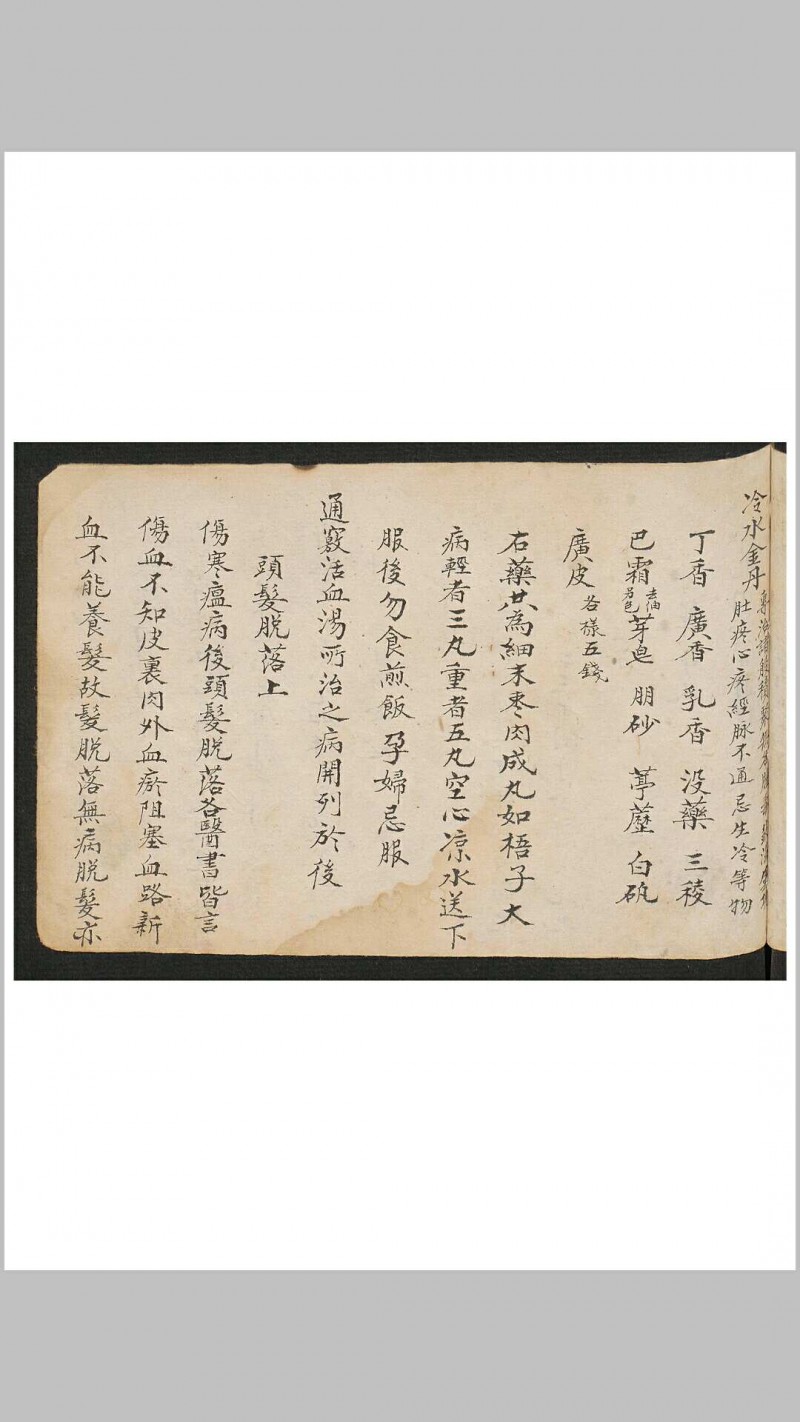 冷水金丹
肚疼心疼經脉不通忌生冷等物
丁香 廣香 乳香 没藥 三稜
巴霜去油名芽皂 朋砂 葶藶 白矾
廣皮 各樣五錢
右藥共為細末枣肉成丸如梧子大
病輕者三丸重者五丸空心凉水送下
服後勿食煎飯孕婦忌服
通竅活血湯所治之病開列於後
頭髮脱落上
傷寒瘟病後頭髮脱落各醫書皆言
傷血不知皮裏肉外血瘀阻塞血路新
血不能養髮故髮脱落無病脱髮亦